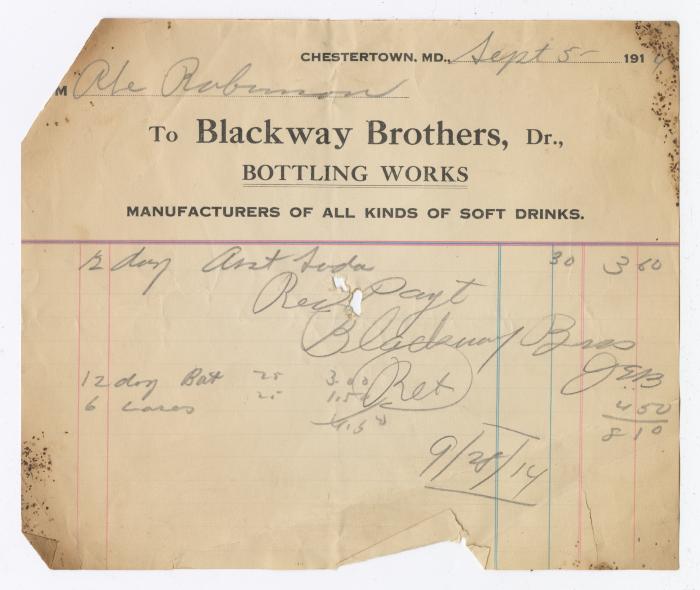 CHESTERTOWN, MD., Sept 5 1914
M Robinson
To Blackway Brothers, Dr.,
BOTTLING WORKS
MANUFACTURERS OF ALL KINDS OF SOFT DRINKS.
12 doz Asst Soda 30 3 60
Rec Payt
Blackway Bros
JEB
12 doz Bot 25 3.00 Ret
6 cases 25 1.50 4 50
4.50 8 10
9/28/14